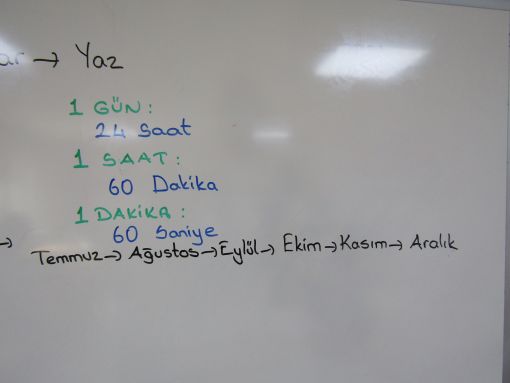 ar → Yaz
1 GÜN:
24 Saat
1 SAAT:
60 Dakika
1 DAKİKA:
60 Saniye
→ Temmuz → Ağustos → Eylül → Ekim → Kasım → Aralık